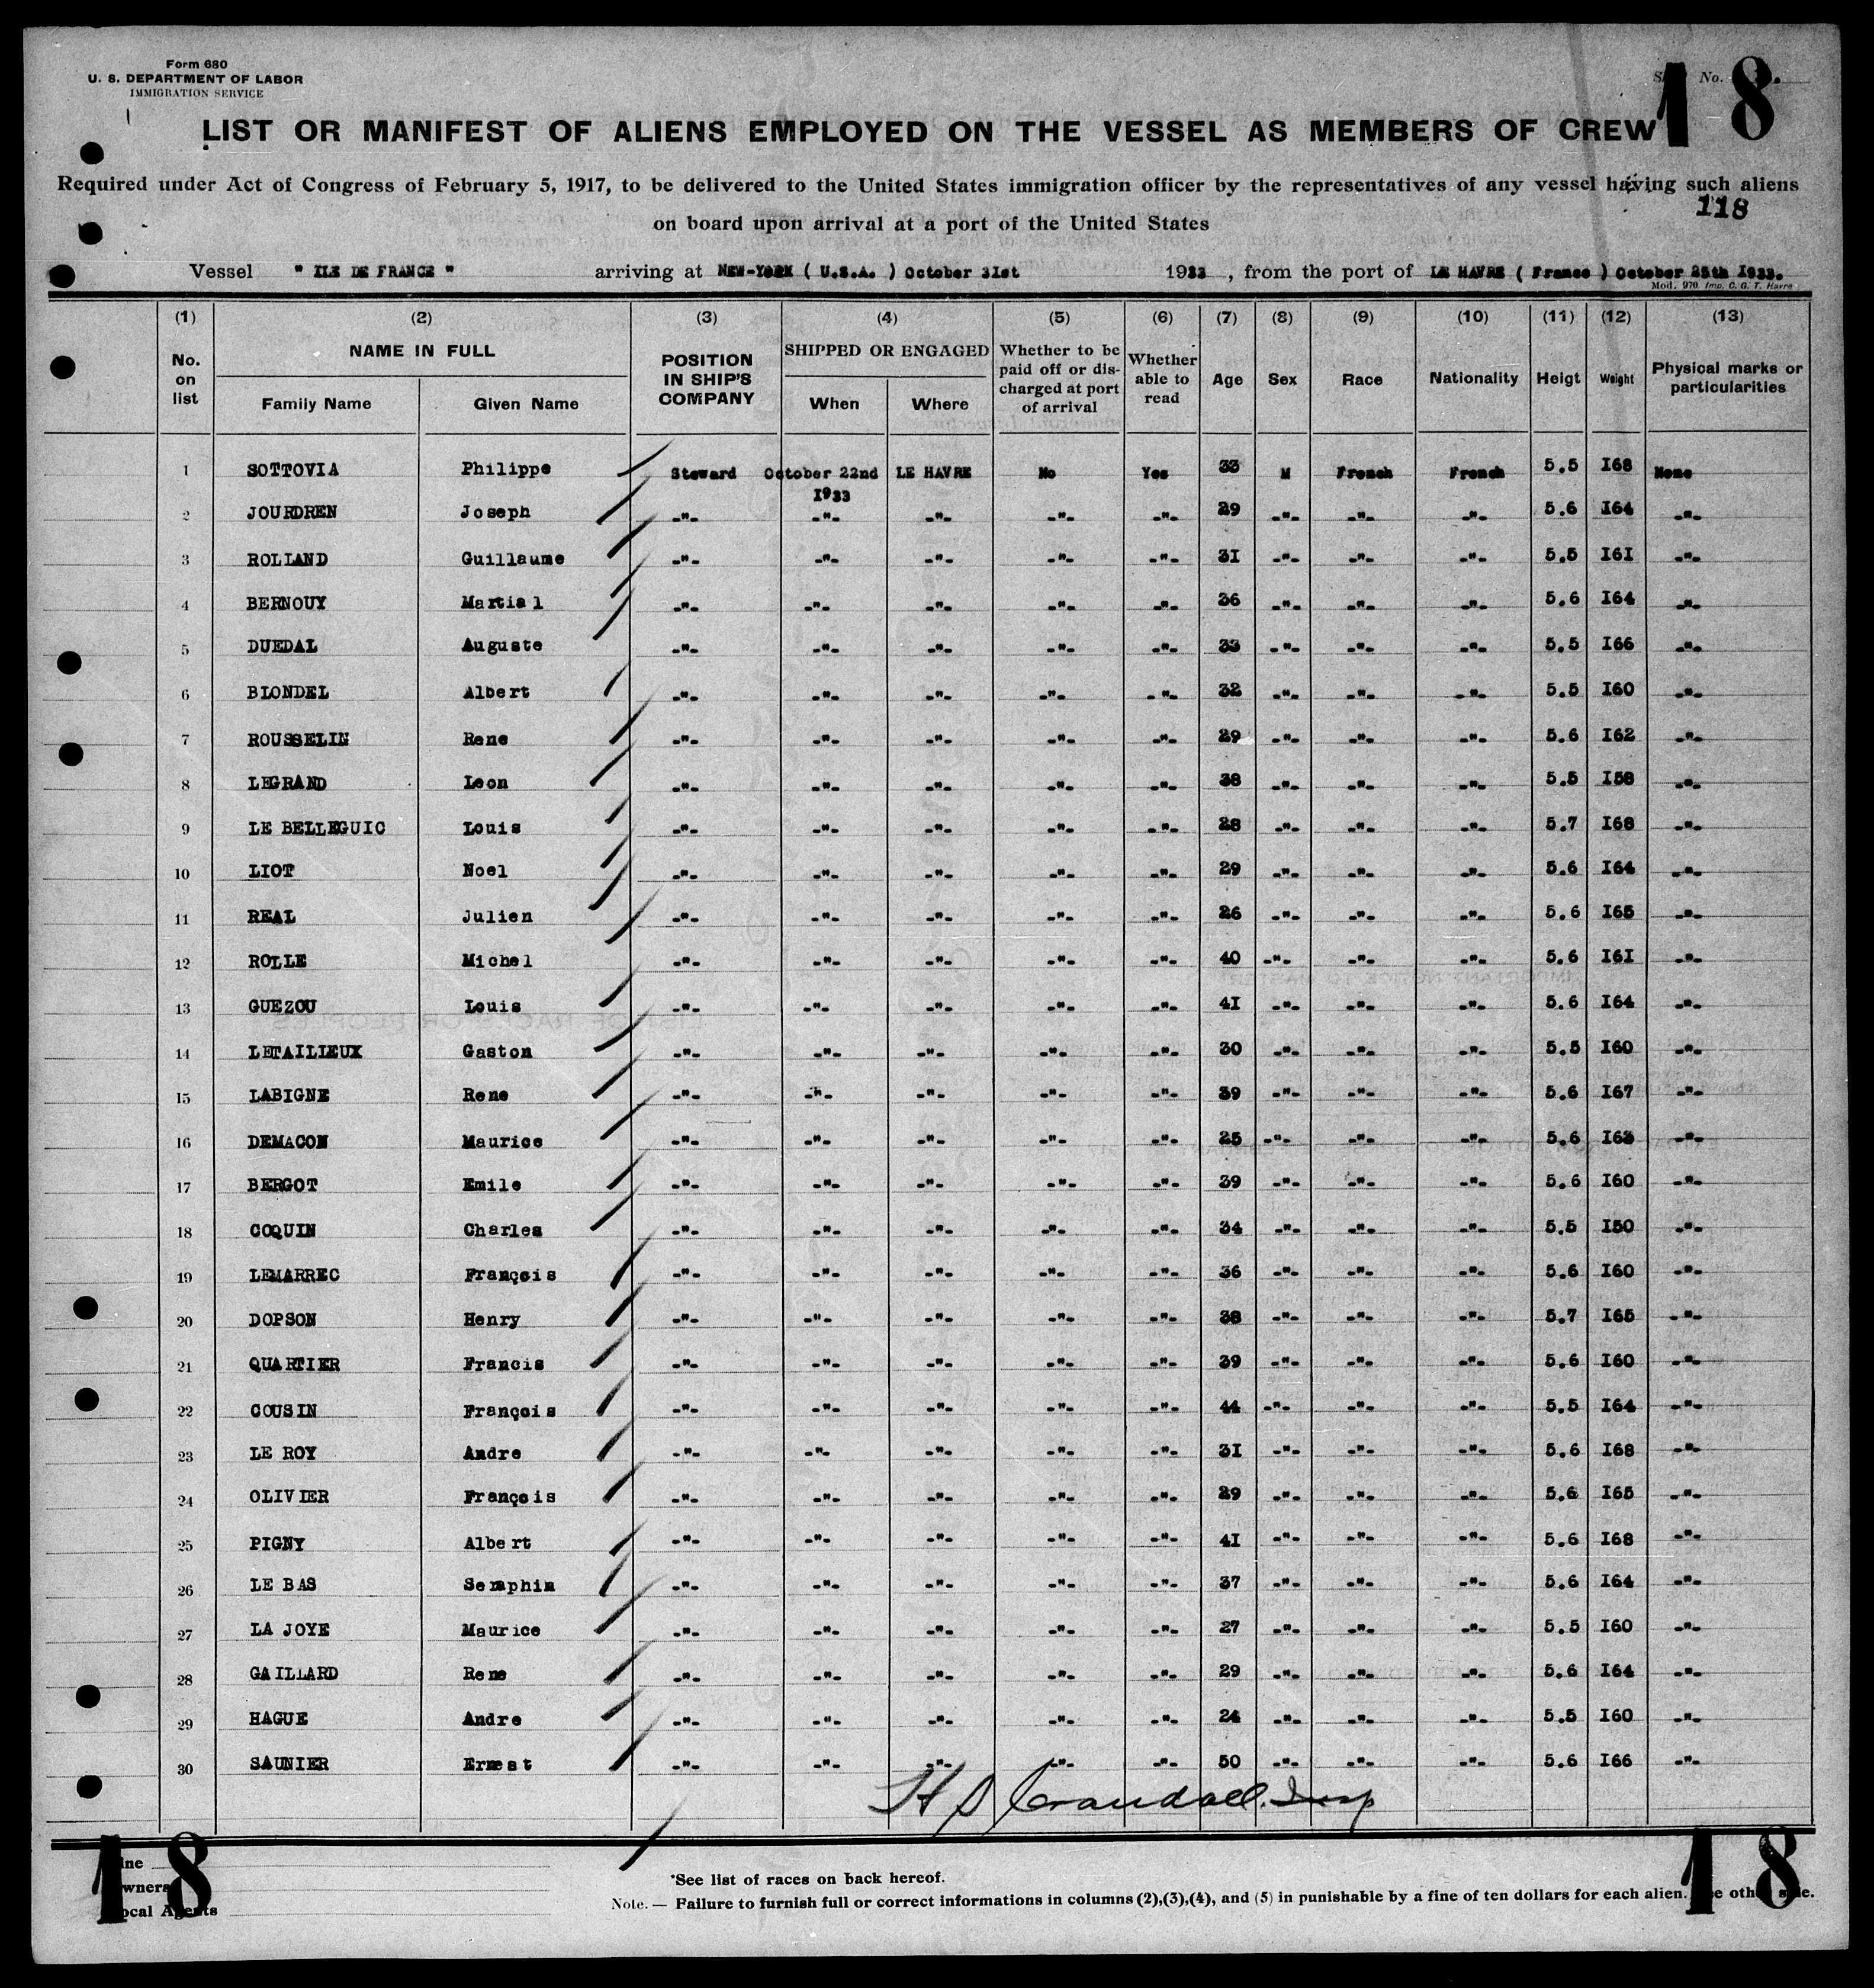 Form 680
U. S. DEPARTMENT OF LABOR
IMMIGRATION SERVICE
No.
18
LIST OR MANIFEST OF ALIENS EMPLOYED ON THE VESSEL AS MEMBERS OF CREW
Required under Act of Congress of February 5, 1917, to be delivered to the United States immigration officer by the representatives of any vessel having such aliens
on board upon arrival at a port of the United States
118
Vessel " ILE DE FRANCE " arriving at NEW-YORK ( U.S.A. ) October 31st 1933 , from the port of LE HAVRE ( France ) October 25th I933.
Mod. 970 Imp. C. G. T. Havre
(1) (2) (3) (4) (5) (6) (7) (8) (9) (10) (11) (12) (13)
No. on list NAME IN FULL Family Name Given Name POSITION IN SHIP'S COMPANY SHIPPED OR ENGAGED When Where Whether to be paid off or discharged at port of arrival Whether able to read Age Sex Race Nationality Heigt Weight Physical marks or particularities
1 SOTTOVIA Philippe Steward October 22nd I933 LE HAVRE No Yes 33 M French French 5.5 I68 None
2 JOURDREN Joseph -"- -"- -"- -"- -"- 29 -"- -"- -"- 5.6 I64 -"-
3 ROLLAND Guillaume -"- -"- -"- -"- -"- 3I -"- -"- -"- 5.5 I6I -"-
4 BERNOUY Martial -"- -"- -"- -"- -"- 36 -"- -"- -"- 5.6 I64 -"-
5 DUEDAL Auguste -"- -"- -"- -"- -"- 33 -"- -"- -"- 5.5 I66 -"-
6 BLONDEL Albert -"- -"- -"- -"- -"- 32 -"- -"- -"- 5.5 I60 -"-
7 ROUSSELIN Rene -"- -"- -"- -"- -"- 29 -"- -"- -"- 5.6 I62 -"-
8 LEGRAND Leon -"- -"- -"- -"- -"- 38 -"- -"- -"- 5.5 I58 -"-
9 LE BELLEGUIC Louis -"- -"- -"- -"- -"- 28 -"- -"- -"- 5.7 I68 -"-
10 LIOT Noel -"- -"- -"- -"- -"- 29 -"- -"- -"- 5.6 I64 -"-
11 REAL Julien -"- -"- -"- -"- -"- 26 -"- -"- -"- 5.6 I65 -"-
12 ROLLE Michel -"- -"- -"- -"- -"- 40 -"- -"- -"- 5.6 I6I -"-
13 GUEZOU Louis -"- -"- -"- -"- -"- 4I -"- -"- -"- 5.6 I64 -"-
14 LETAILIEUX Gaston -"- -"- -"- -"- -"- 30 -"- -"- -"- 5.5 I60 -"-
15 LABIGNE Rene -"- -"- -"- -"- -"- 39 -"- -"- -"- 5.6 I67 -"-
16 DEMACON Maurice -"- -"- -"- -"- -"- 25 -"- -"- -"- 5.6 I63 -"-
17 BERGOT Emile -"- -"- -"- -"- -"- 39 -"- -"- -"- 5.6 I60 -"-
18 COQUIN Charles -"- -"- -"- -"- -"- 34 -"- -"- -"- 5.5 I50 -"-
19 LEMARREC François -"- -"- -"- -"- -"- 36 -"- -"- -"- 5.6 I60 -"-
20 DOPSON Henry -"- -"- -"- -"- -"- 38 -"- -"- -"- 5.7 I65 -"-
21 QUARTIER Francis -"- -"- -"- -"- -"- 39 -"- -"- -"- 5.6 I60 -"-
22 COUSIN François -"- -"- -"- -"- -"- 44 -"- -"- -"- 5.5 I64 -"-
23 LE ROY Andre -"- -"- -"- -"- -"- 3I -"- -"- -"- 5.6 I68 -"-
24 OLIVIER François -"- -"- -"- -"- -"- 29 -"- -"- -"- 5.6 I65 -"-
25 PIGNY Albert -"- -"- -"- -"- -"- 4I -"- -"- -"- 5.6 I68 -"-
26 LE BAS Seraphin -"- -"- -"- -"- -"- 37 -"- -"- -"- 5.6 I64 -"-
27 LA JOYE Maurice -"- -"- -"- -"- -"- 27 -"- -"- -"- 5.5 I60 -"-
28 GAILLARD Rene -"- -"- -"- -"- -"- 29 -"- -"- -"- 5.6 I64 -"-
29 HAGUE Andre -"- -"- -"- -"- -"- 24 -"- -"- -"- 5.5 I60 -"-
30 SAUNIER Ernest -"- -"- -"- -"- -"- 50 -"- -"- -"- 5.6 I66 -"-
H S Crandall. Insp
18
18
ocal Agents
*See list of races on back hereof.
Note. — Failure to furnish full or correct informations in columns (2),(3),(4), and (5) in punishable by a fine of ten dollars for each alien.